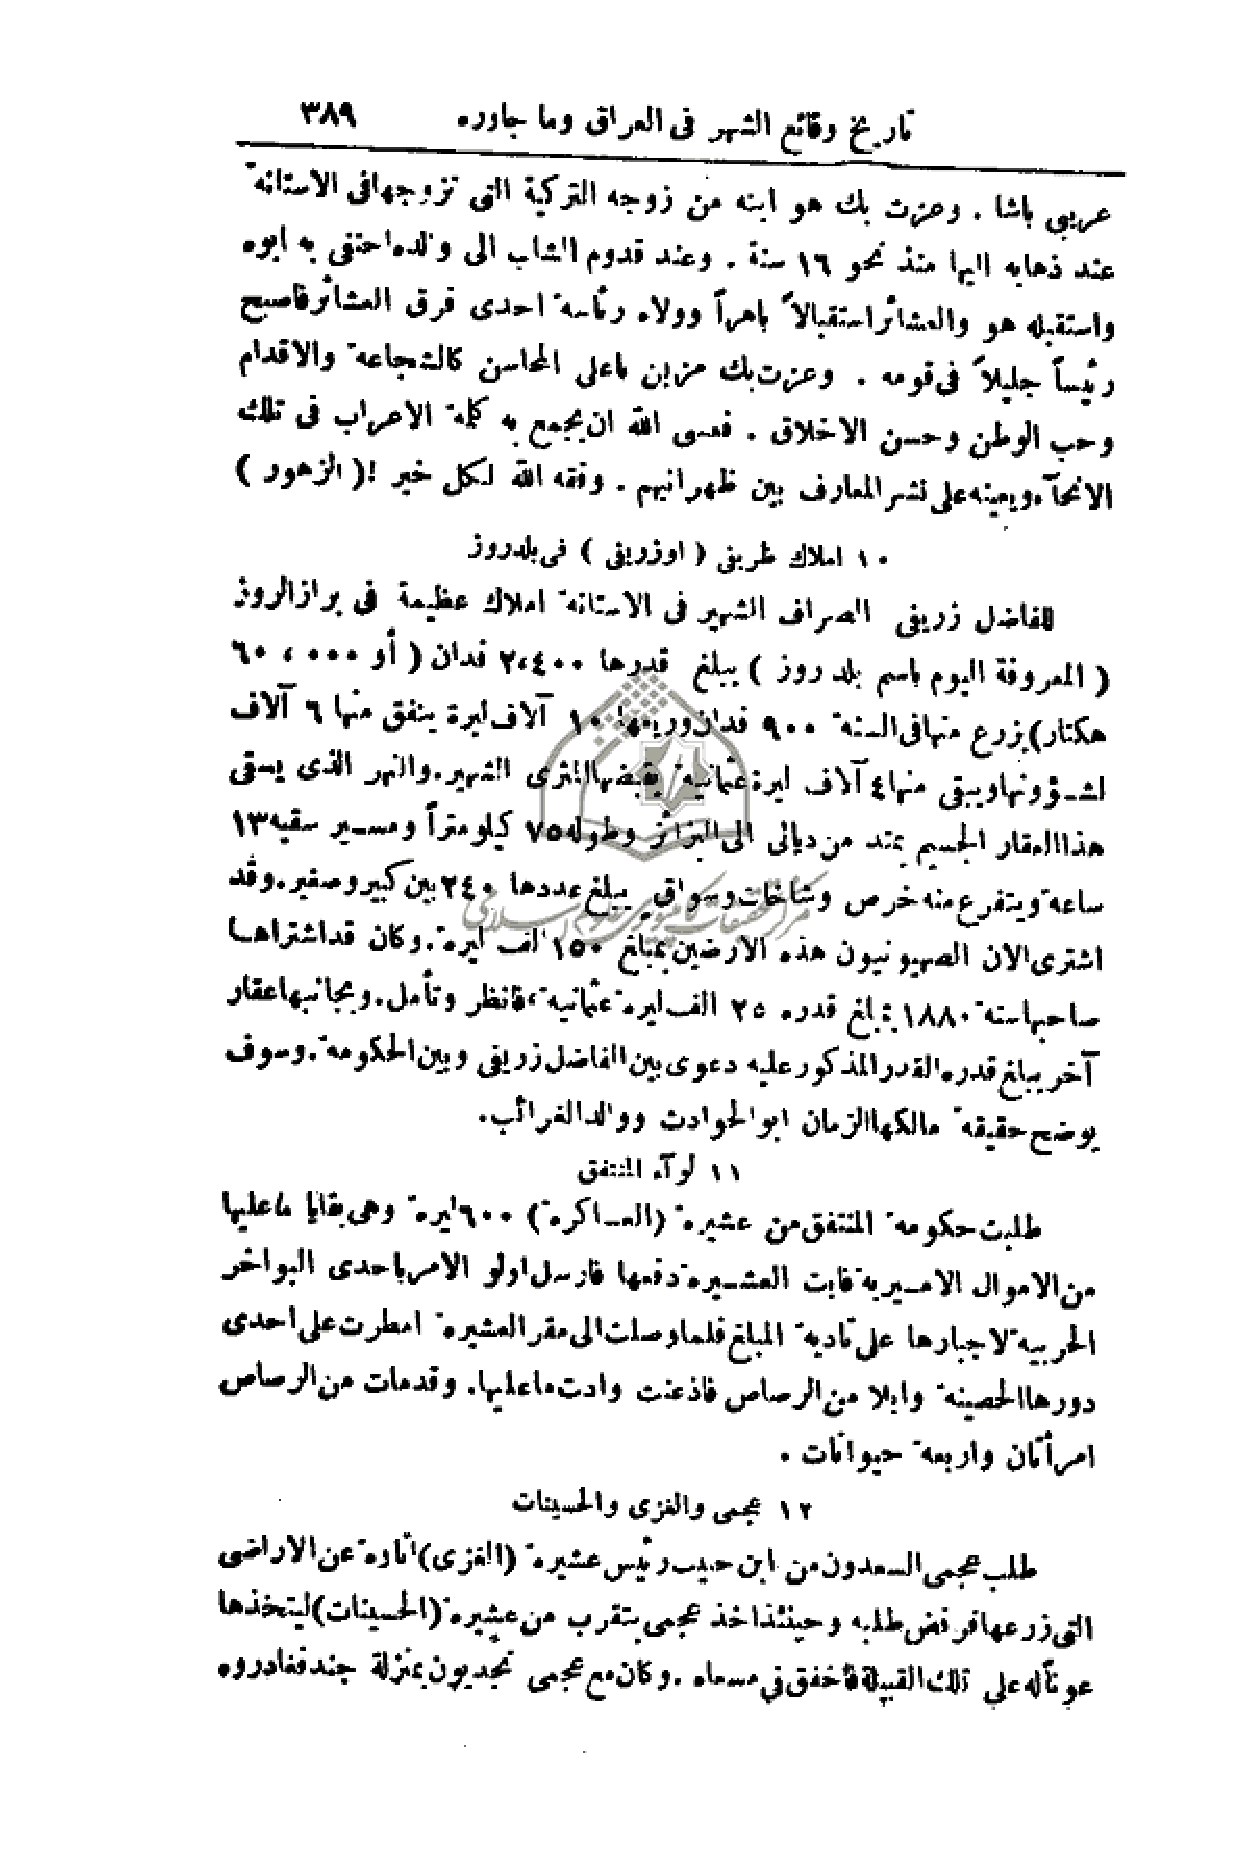 تاريخ وقائع الشهر في العراق وما جاوره ٣٨٩
عربي باشا . وعزت بك هو ابنه من زوجه التركية التي تزوجها في الاستانة
عند ذهابه اليها منذ نحو ١٦ سنة . وعند قدوم الشاب الى والده احتفى به ابوه
واستقبله هو والعشائر استقبالاً باهراً وولاه رئاسة احدى فرق العشائر فاصبح
رئيساً جليلاً في قومه . وعزت بك مزين باعلى المحاسن كالشجاعة والاقدام
وحب الوطن وحسن الاخلاق . فعسى الله ان يجمع به كلمة الاعراب في تلك
الانحآء ويعينه على نشر المعارف بين ظهرانيهم . وفقه الله لكل خير !( الزهور )
١٠ املاك ظريفي ( اوزريفي ) في بلدروز
للفاضل زريفي الصراف الشهير في الاستانة املاك عظيمة في براز الروز
( المعروفة اليوم باسم بلد روز ) يبلغ قدرها ٢،٤٠٠ فدان ( أو ٦٠،٠٠٠
هكتار) يزرع منها في السنة ٩٠٠ فدان وريعها ١٠ آلاف ليرة ينفق منها ٦ آلاف
لشؤونها ويبقى منها ٤ آلاف ليرة عثمانية يقبضها المثرى الشهير. والنهر الذي يسقى
هذا العقار الجسيم يمتد من ديالى الى البزائز وطوله ٧٥ كيلومتراً ومسير سقيه ١٣
ساعة ويتفرع منه خرص وشاخات وسواقٍ يبلغ عددها ٢٤٠ بين كبير وصغير. وقد
اشترى الان الصهيونيون هذه الارضين بمبلغ ١٥٠ الف ليرة. وكان قد اشتراها
صاحبها سنة ١٨٨٠ بمبلغ قدره ٢٥ الف ليرة عثمانية، فانظر وتأمل. وبجانبها عقار
آخر يبلغ قدره القدر المذكور عليه دعوى بين الفاضل زريفي وبين الحكومة. وسوف
يوضح حقيقة مالكها الزمان ابو الحوادث ووالد الغرائب.
١١ لوآء المنتفق
طلبت حكومة المنتفق من عشيرة (العساكرة) ٦٠٠ ليرة وهي بقايا ما عليها
من الاموال الاميرية فابت العشيرة دفعها فارسل اولو الامر باحدى البواخر
الحربية لاجبارها على تادية المبلغ فلما وصلت الى مقر العشيرة امطرت على احدى
دورها الحصينة وابلا من الرصاص فاذعنت وادت ما عليها. وقد مات من الرصاص
امرأتان واربعة حيوانات .
١٢ عجمي والغزي والحسينات
طلب عجمي السعدون من ابن حبيب رئيس عشيرة (الغزى) اتاوة عن الاراضي
التي زرعها فرفض طلبه وحينئذ اخذ عجمي يتقرب من عشيرة (الحسينات) ليتخذها
عوناً له على تلك القبيلة فأخفق في مسعاه . وكان مع عجمي نجديون بمنزلة جند فغادروه
مركز تحقيقات كامپيوترى علوم اسلامى